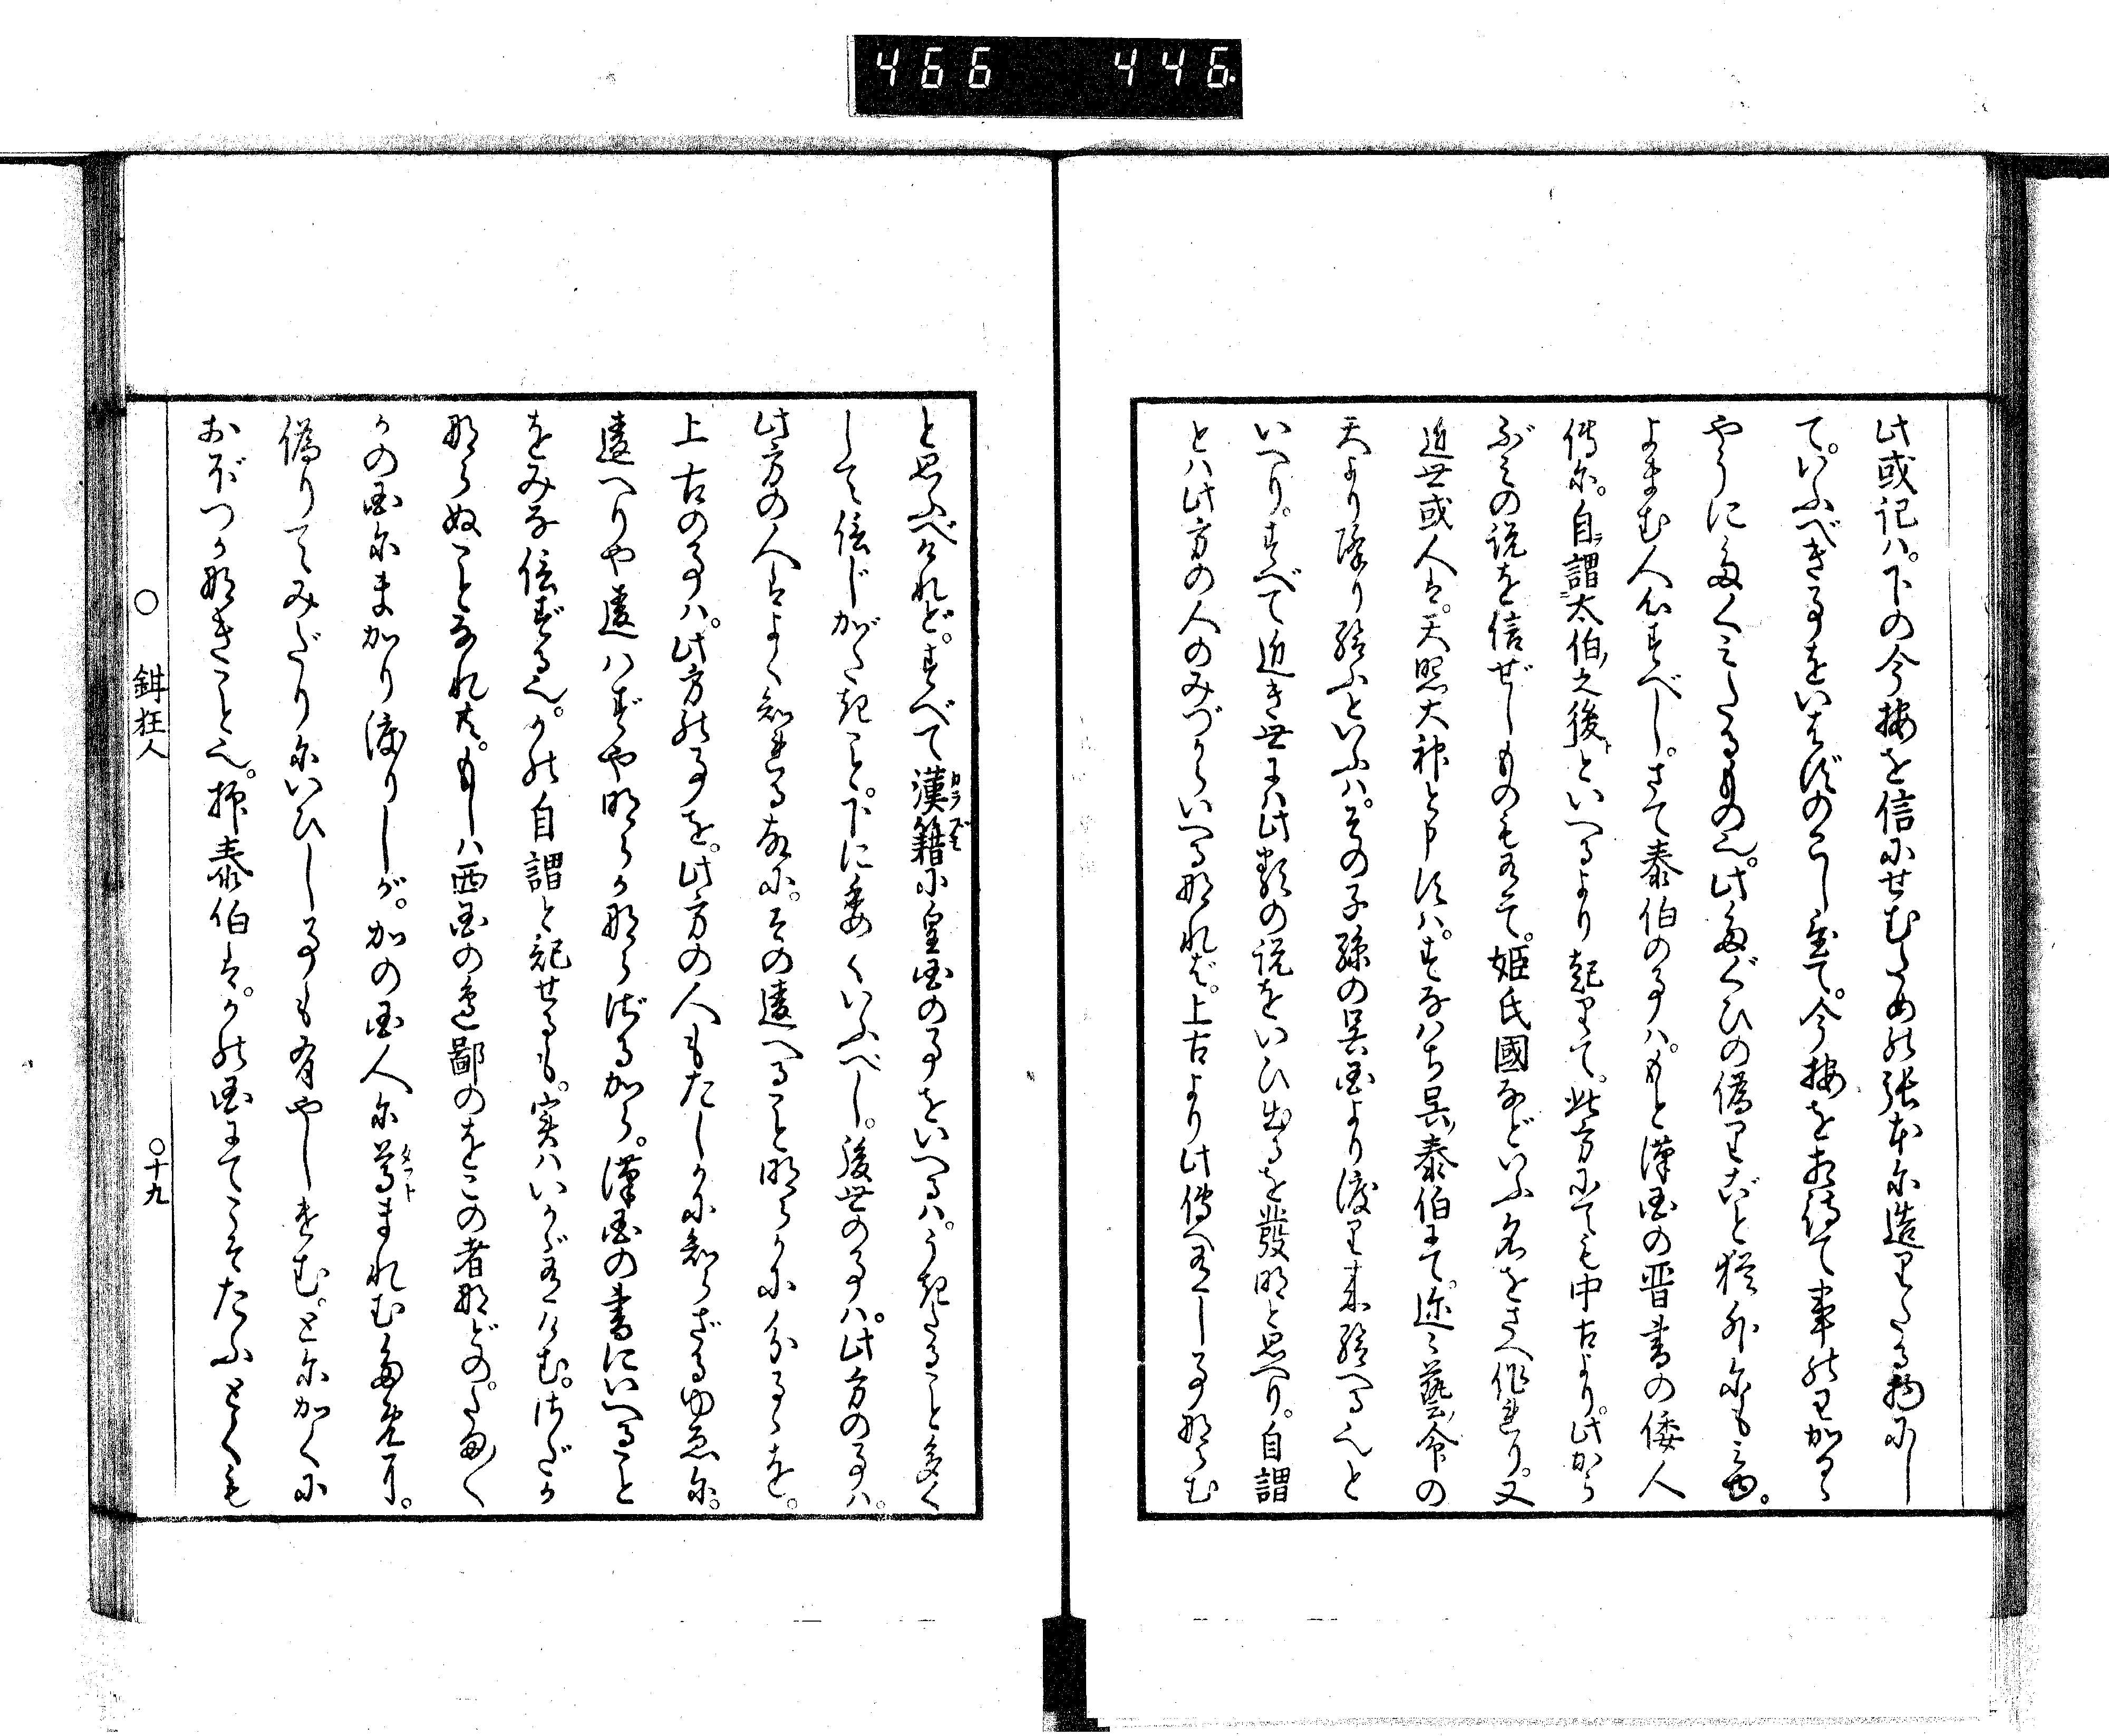 466 446
此或記ハ。下の今按を信にせむための張本に造りたる物にし
て。いふべき事をいはずのこし置て。今按を相待て事のわかる
やうにたくみたるもの也。此たぐひの偽りごと猶外にも見ゆ。
よまむ人心すべし。さて泰伯の事ハ。もと漢国の晋書の倭人
傳に。自謂太伯之後といへるより起りて。此方にても中古より。此から
ぶみの説を信ぜしものも有て。姫氏國などいふ名をさへ作れり。又
近世或人は。天照大神と申すハ。すなはち呉泰伯にて。迩々藝命の
天より降り給ふといふハ。その子孫の呉国より渡り来給へる也と
いへり。すべて近き世にハ此類の説をいひ出るを發明と思へり。自謂
とハ此方の人のみづからいへるなれば。上古より此傳へ有し事ならむ
と思ふべけれど。すべて漢籍に皇国の事をいへるハ。うきたること多く
して信じがたきこと。下に委くいふべし。後世の事ハ。此方の事ハ。
此方の人はよく知れる故に。その違へること明らかに分るゝを。
上古の事ハ。此方の事を。此方の人もたしかに知らざるゆゑに。
違へりや違ハずや明らかならざるから。漢国の書にいへること
をみな信ずる也。かの自謂と記せるも。実ハいかゞ有けむ。さだか
ならぬことなれば。もしハ西国の邊鄙のをこの者などの。たまく
かの国にまかり渡りしが。かの国人に尊まれむために。
偽りてみだりにいひし事も有やしけむ。とにかくに
おぼつかなきこと也。抑泰伯は。かの国にてこそたふとくも
○ 鉗狂人 ○十九